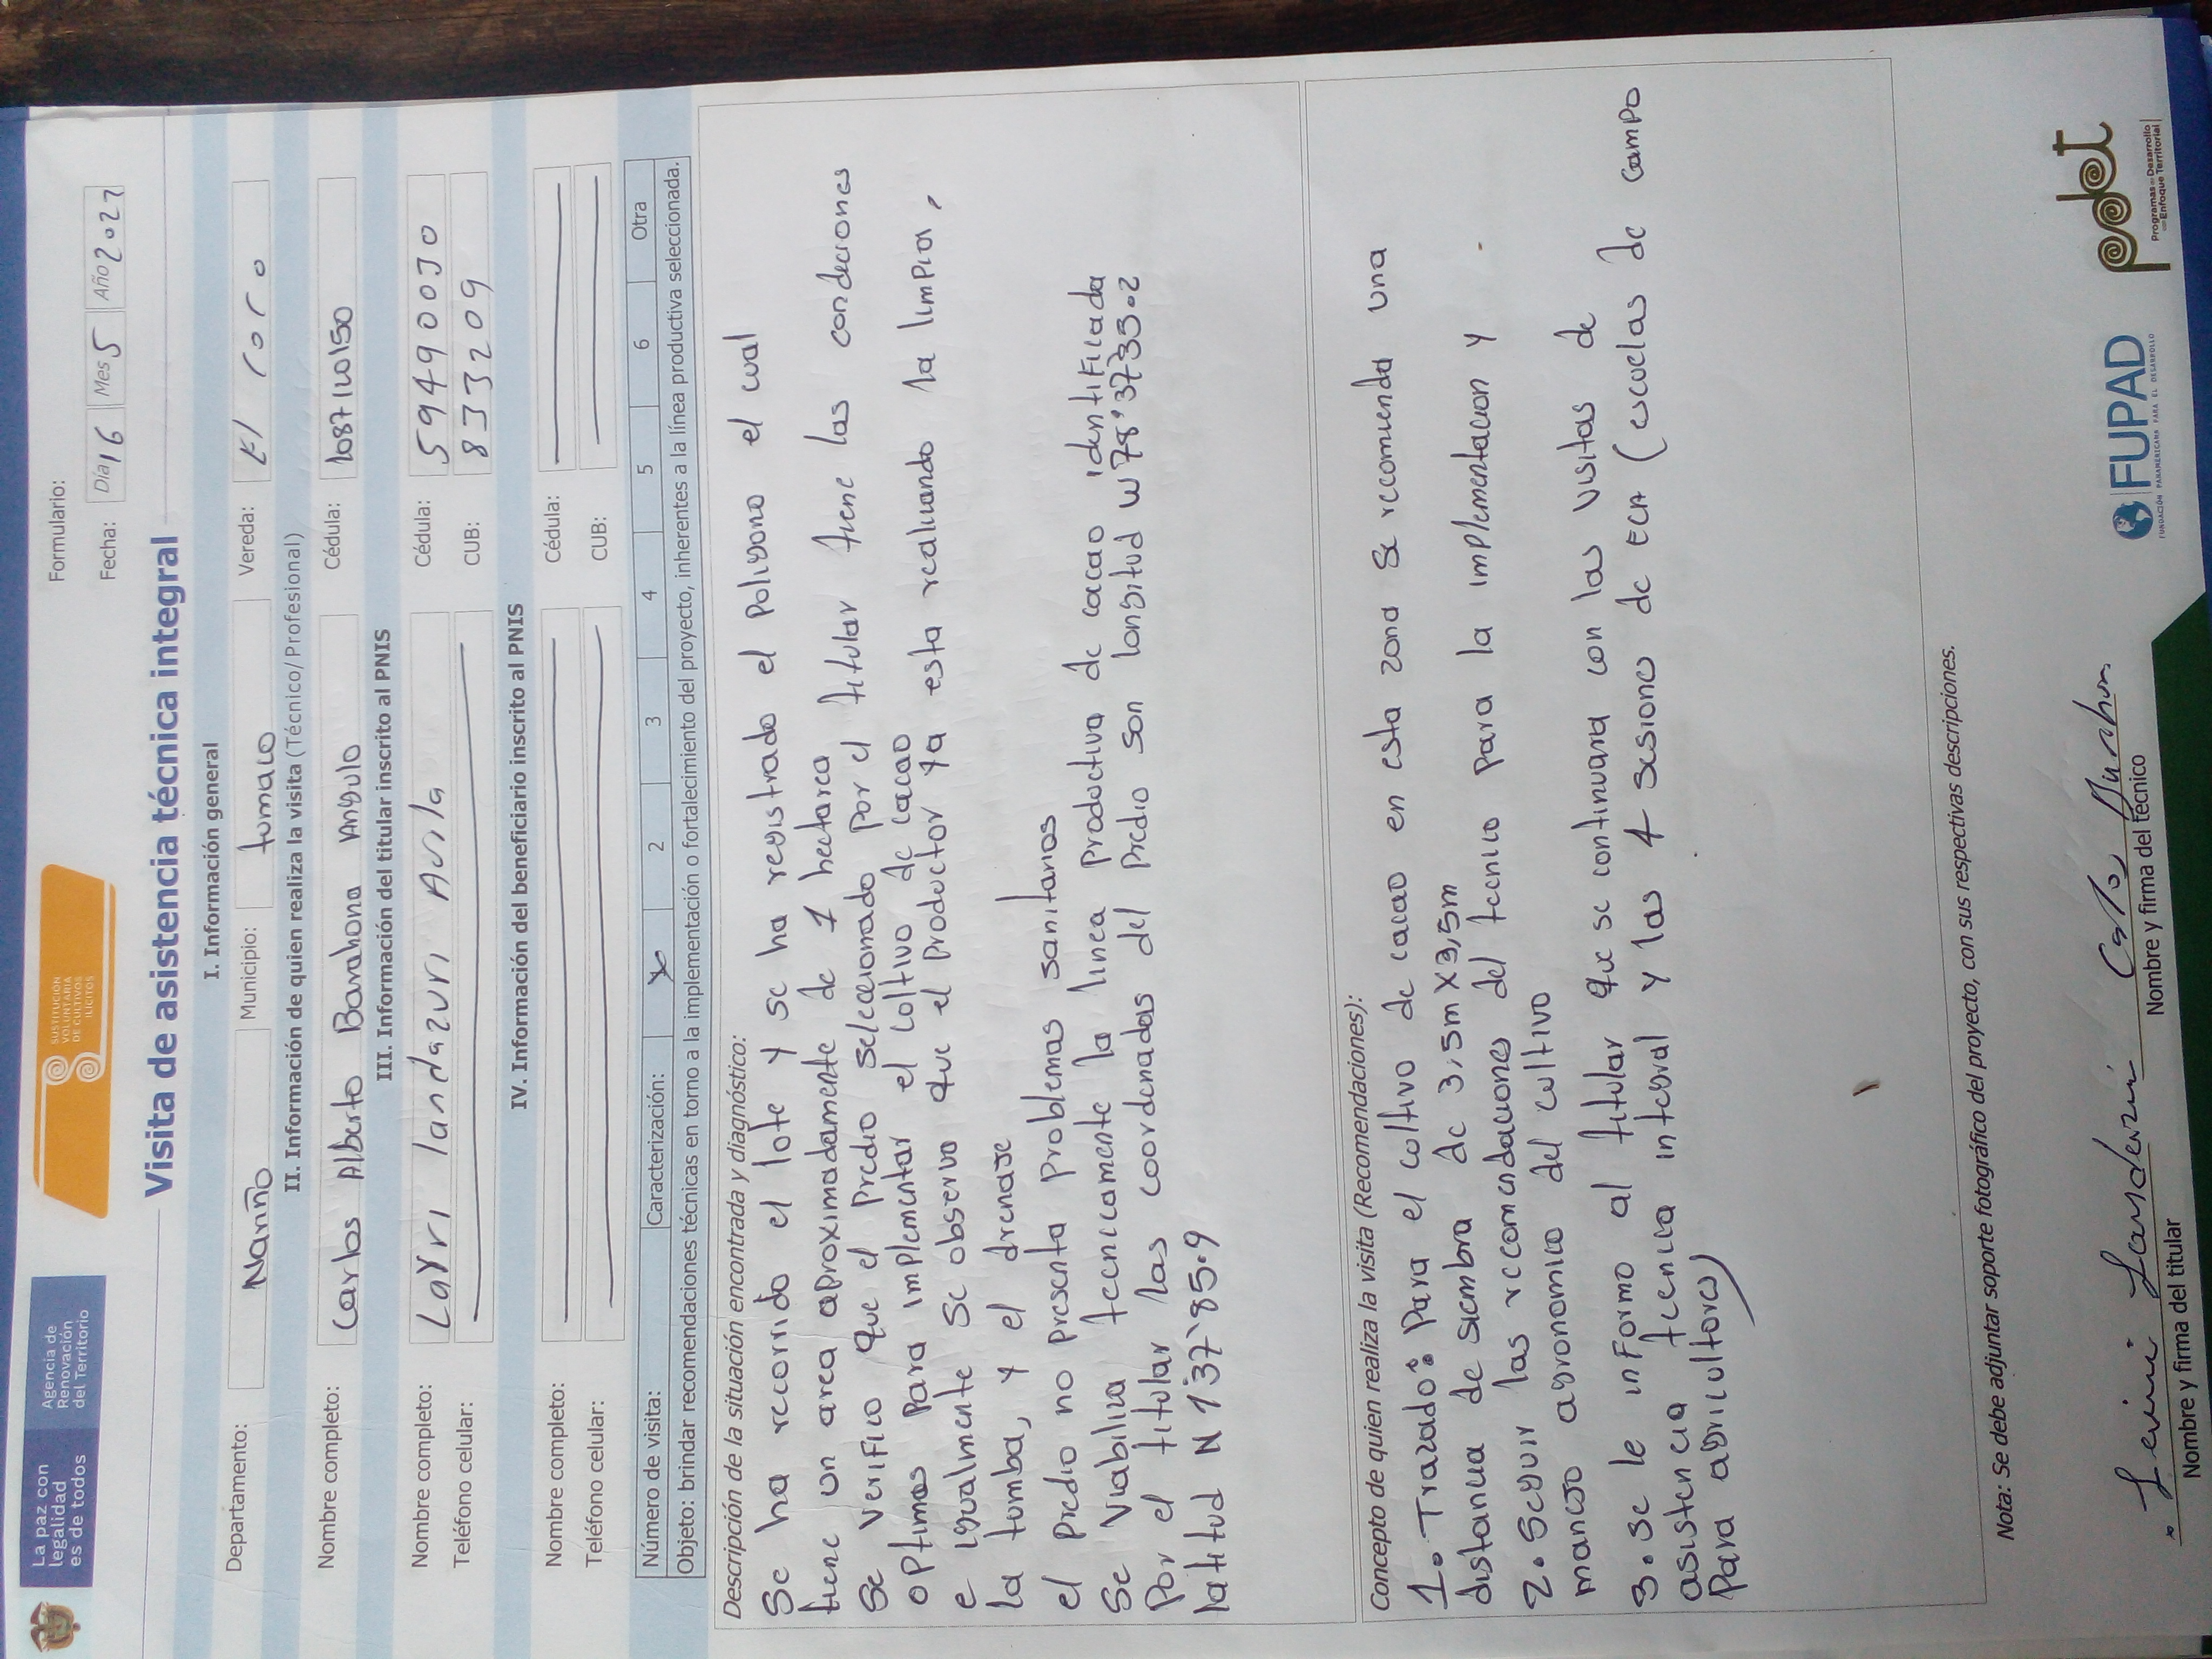 La paz con
legalidad
es de todos
Agencia de
Renovación
del Territorio
SUSTITUCIÓN
VOLUNTARIA
DE CULTIVOS
ILÍCITOS
Formulario:
Fecha: Día 16 Mes 5 Año 2021
Visita de asistencia técnica integral
I. Información general
Departamento: Nariño Municipio: tumaco Vereda: El coro
II. Información de quien realiza la visita (Técnico/Profesional)
Nombre completo: Carlos Alberto Barahona Angulo Cédula: 1087120150
III. Información del titular inscrito al PNIS
Nombre completo: Layri landazuri Avila Cédula: 59490030
Teléfono celular: CUB: 833209
IV. Información del beneficiario inscrito al PNIS
Nombre completo: Cédula:
Teléfono celular: CUB:
Número de visita: Caracterización: X 2 3 4 5 6 Otra
Objeto: brindar recomendaciones técnicas en torno a la implementación o fortalecimiento del proyecto, inherentes a la línea productiva seleccionada.
Descripción de la situación encontrada y diagnóstico:
Se ha recorrido el lote y se ha registrado el Poligono el cual
tiene un area aproximadamente de 1 hectarea
Se verifico que el Predio seleccionado Por el titular tiene las condiciones
optimas Para implementar el coltivo de cacao
e igualmente se observo que el productor ya esta realuando la limpia,
la tumba, y el drenaje
el Predio no Presenta Problemas sanitarios
Se Viabiliza tecnicamente la linea Productiva de cacao identificada
Por el titular las coordenadas del Predio son longitud W 78°37'35.2
latitud N 1°37'85.9
Concepto de quien realiza la visita (Recomendaciones):
1. Trazado: Para el coltivo de cacao en esta zona se recomienda una
distancia de siembra de 3,5m X 3,5m
2. Seguir las recomendaciones del tecnico Para la implementacion y
manejo agronomico del cultivo
3. Se le informo al titular que se continuara con las visitas de
asistencia tecnica integral y las 4 sesiones de ECA (escuelas de campo
Para agricultores)
Nota: Se debe adjuntar soporte fotográfico del proyecto, con sus respectivas descripciones.
Nombre y firma del titular
Nombre y firma del técnico
FUPAD
FUNDACIÓN PANAMERICANA PARA EL DESARROLLO
Pdet
Programas de Desarrollo
con Enfoque Territorial